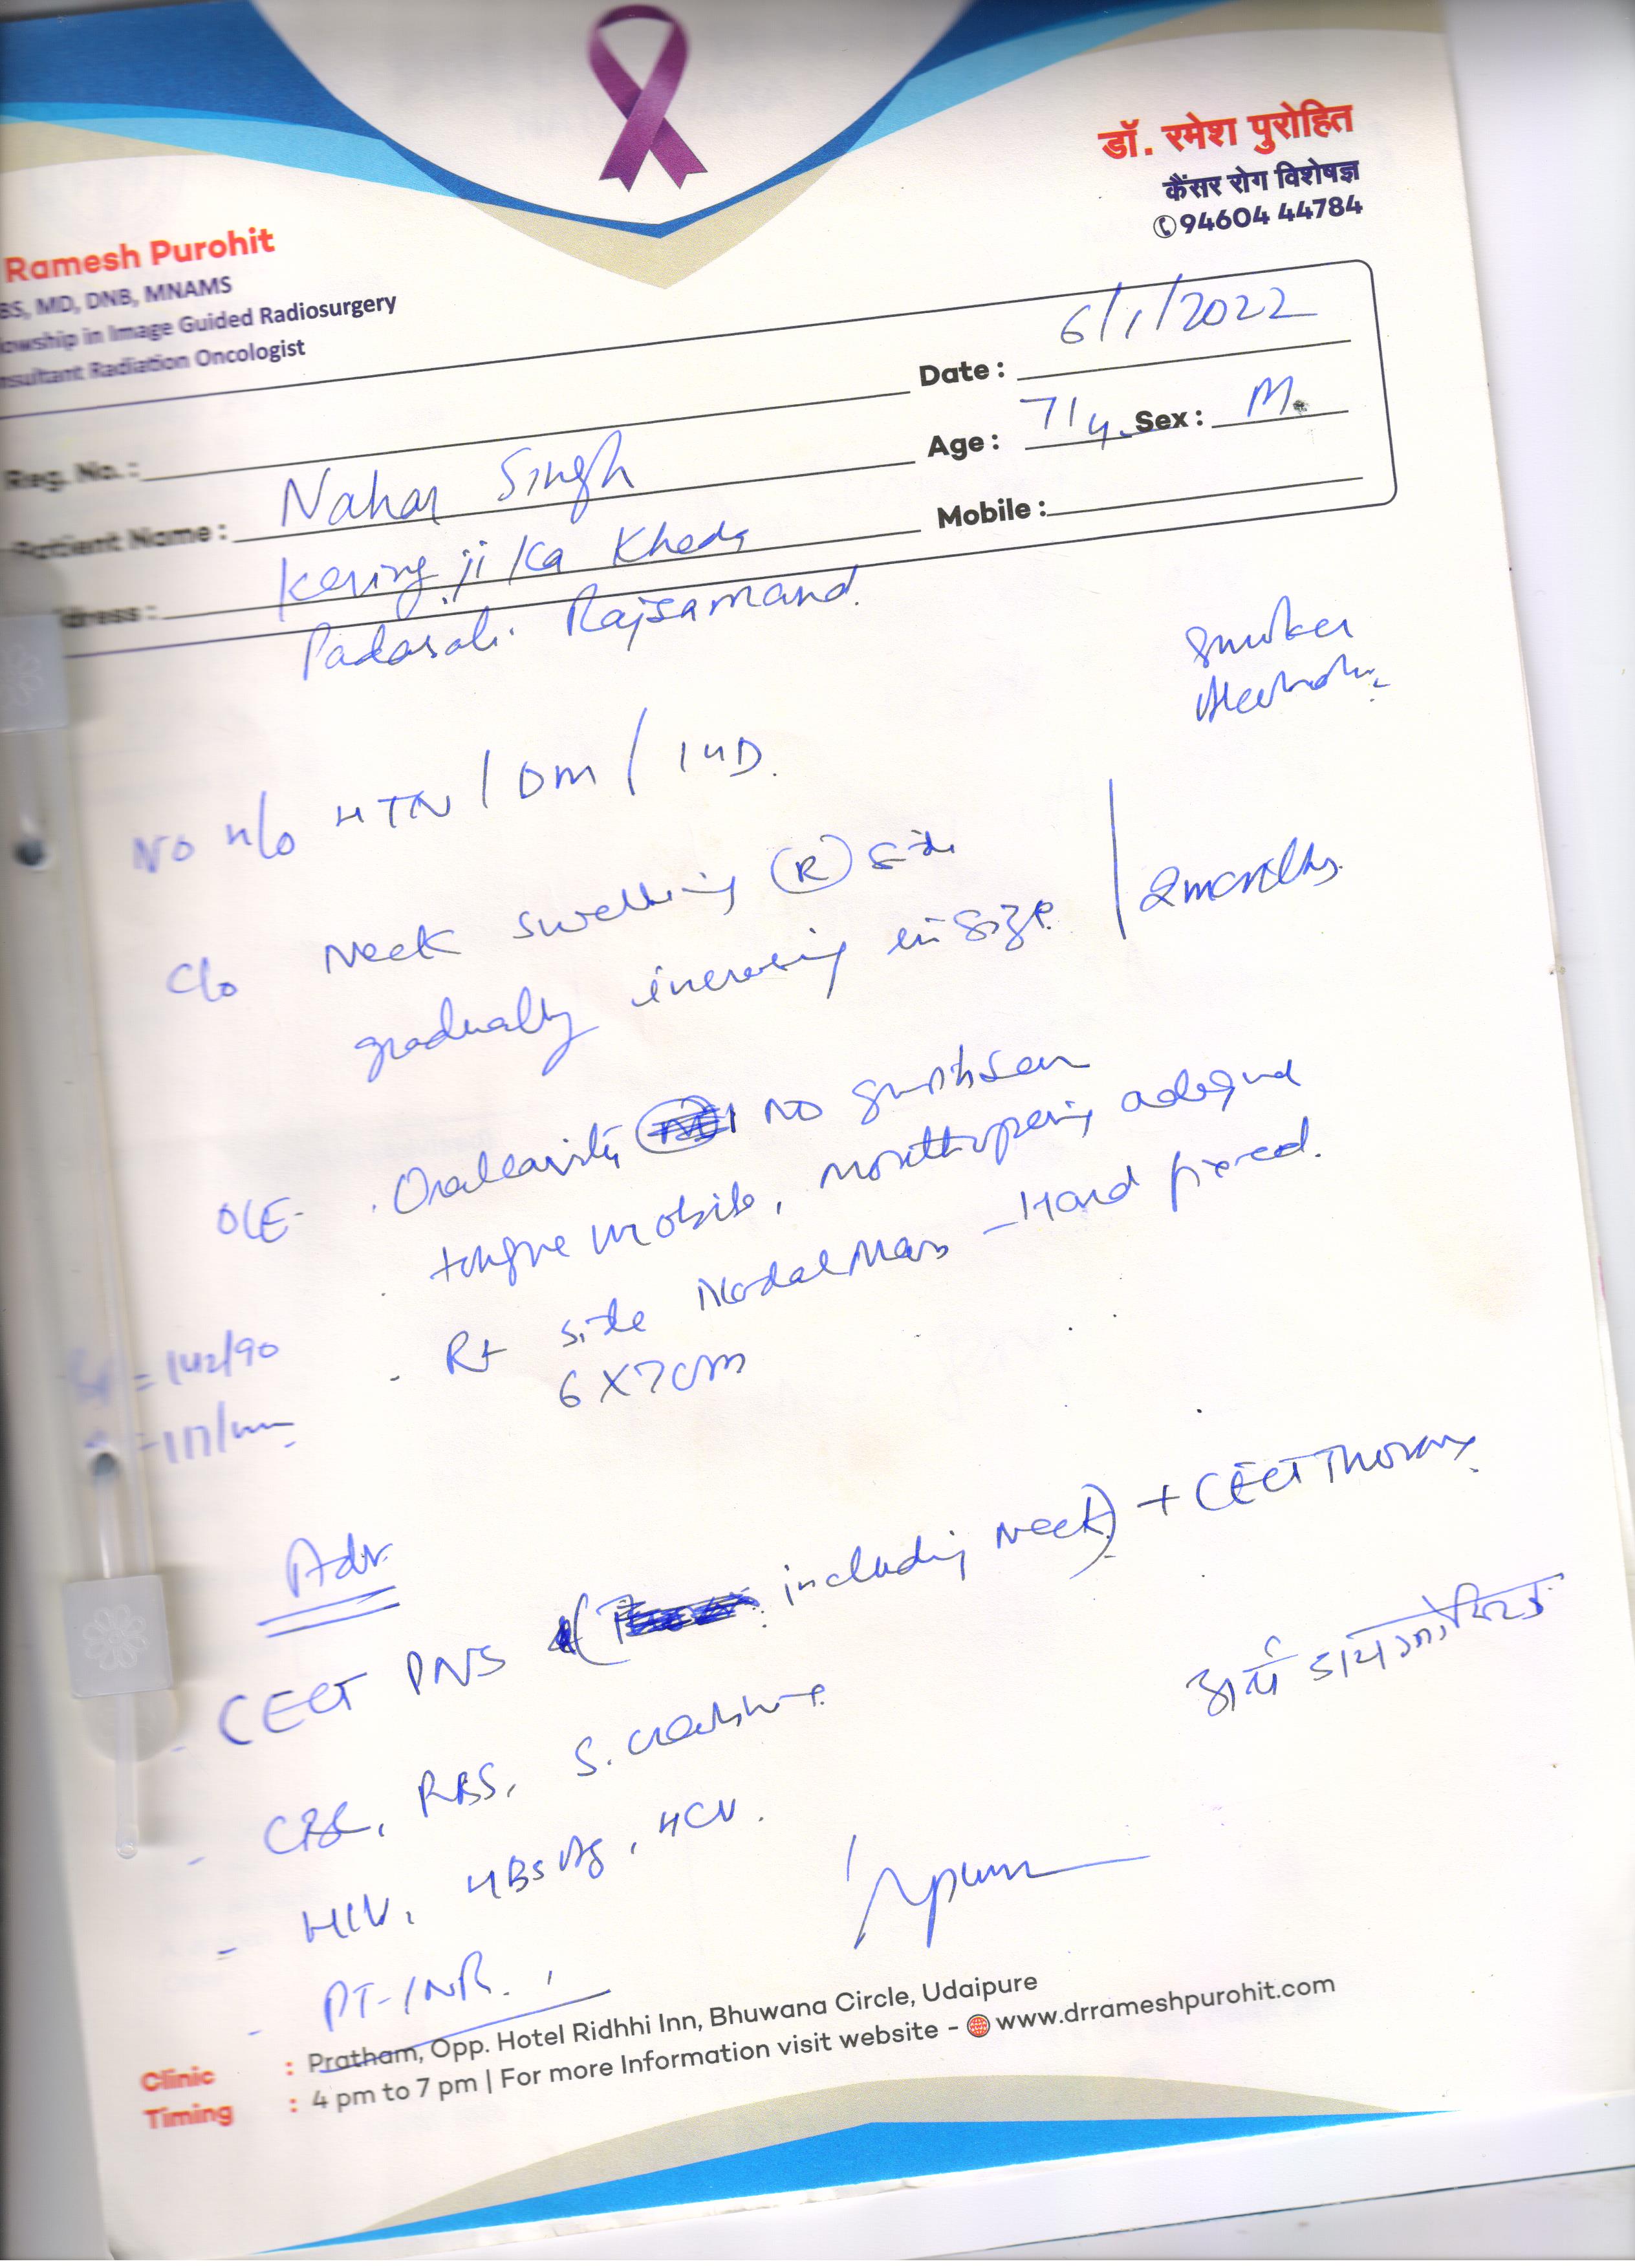 डॉ. रमेश पुरोहित
कैंसर रोग विशेषज्ञ
94604 44784
Ramesh Purohit
BS, MD, DNB, MNAMS
owship in Image Guided Radiosurgery
nsultant Radiation Oncologist
Date : 6/1/2022
Reg. No. :
Age : 71y. Sex : M.
Patient Name : Nahar Singh
Mobile :
dress : ji Ka Kheda
Rajsamand.
Smoker
Alcoholic
No H/o HTN / DM / IHD.
C/o Neck swelling (R) side
gradually increasing in size | 2 months.
O/E - . Oral cavity No
tongue mobile, mouth opening
- Rt side Nodal Mass - Hard fixed.
6 X 7 cm
= 142/90
Adv.
- CECT PNS ( including Neck) + CECT Thorax
- CBC, RBS, S. creatinine
- HIV, HBsAg, HCV.
- PT-INR.
Clinic : Pratham, Opp. Hotel Ridhhi Inn, Bhuwana Circle, Udaipure
Timing : 4 pm to 7 pm | For more Information visit website - www.drrameshpurohit.com